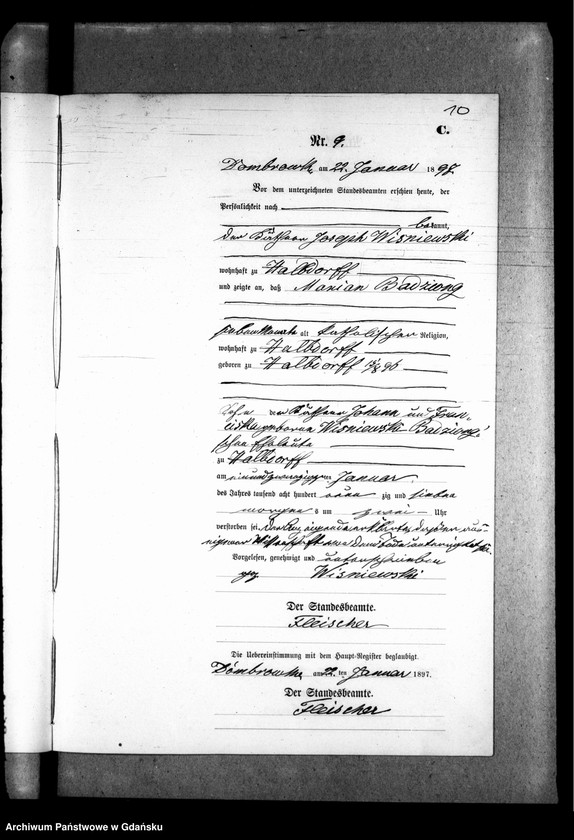 10
C.
Nr. 9.
Dombrowk, am 22. Januar 1897.
Vor dem unterzeichneten Standesbeamten erschien heute, der
Persönlichkeit nach
bekannt,
der Käthner Joseph Wisniewski
wohnhaft zu Halbdorff
und zeigte an, daß Marian Badziong
alt, katholischer Religion,
wohnhaft zu Halbdorff
geboren zu Halbdorff
Sohn der Käthner Johann und Fran-
ciska geborne Wisniewski Badziong'
schen Eheleute
zu Halbdorff
am einundzwanzigsten Januar
des Jahres tausend acht hundert neun zig und sieben
morgens um zwei Uhr
verstorben sei. Der Anzeigende erklärte, daß er aus
eigener Wissenschaft von dem Tode unterrichtet sei.
Vorgelesen, genehmigt und unterschrieben
gez. Wisniewski
Der Standesbeamte.
Fleischer
Die Uebereinstimmung mit dem Haupt-Register beglaubigt.
Dombrowk, am 22. ten Januar 1897.
Der Standesbeamte.
Fleischer
Archiwum Państwowe w Gdańsku